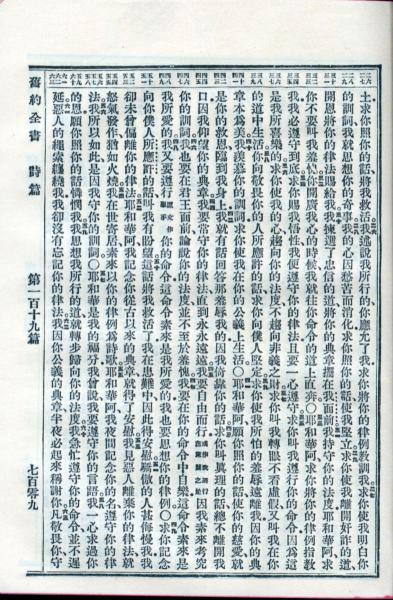 土求你照你的話將我救活我述說我所行的你應允了我求你將你的律例教訓我求你使我明白你
的訓詞我就思想你的奇事我的心因愁苦而消化求你照你的話使我堅立求你使我離開奸詐的道
開恩將你的律法賜給我我揀選了忠信的道將你的典章擺在我面前我持守你的法度耶和華求
你不要叫我羞愧你開廣我心的時候我就往你命令的道上直奔〇耶和華阿求你將你的律例指教
我我必遵守到底求你賜我悟性我便遵守你的律法且要一心遵守求你叫我遵行你的命令因爲這
是我所喜樂的求你使我的心趨向你的法度不趨向非義之財求你叫我轉眼不看虛假又叫我在你
的道中生活你向敬畏你的人所應許的話求你向僕人堅定求你使我所怕的羞辱遠離我因你的典
章本爲美我羨慕你的訓詞求你使我在你的公義上生活〇耶和華阿願你照你的話使你的慈愛就
是你的救恩臨到我身上我就有話回答那羞辱我的因我倚靠你的話求你叫真理的話總不離開我
口因我仰望你的典章我要常守你的律法直到永永遠遠我要自由而行因我素來考究
你的訓詞我也要在君王面前論說你的法度並不至於羞愧我要在你的命令中自樂這命令素來是
我所愛的我又要遵行原文作舉手你的命令這命令素來是我所愛的我也要思想你的律例〇求你記念
向你僕人所應許的話叫我有盼望這話將我救活了我在患難中因此得安慰驕傲的人甚侮慢我我
卻未曾偏離你的律法耶和華阿我記念你從古以來的典章就得了安慰我見惡人離棄你的律法就
怒氣發作猶如火燒我在世寄居素來以你的律例爲詩歌耶和華阿我夜間記念你的名遵守你的律
法我所以如此是因我守你的訓詞〇耶和華是我的福分我曾說我要遵守你的言語我一心求過你
的恩願你照你的話憐憫我我思想我所行的道就轉步歸向你的法度我急忙遵守你的命令並不遲
延惡人的繩索纏繞我我卻沒有忘記你的律法我因你公義的典章半夜必起來稱謝你凡敬畏你守
舊約全書 詩篇 第一百十九篇 七百零九